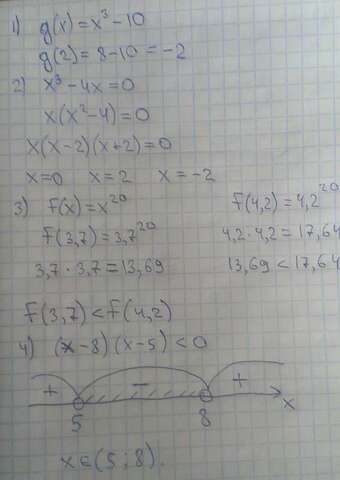 1) g(x) = x³ - 10
g(2) = 8 - 10 = -2
2) x³ - 4x = 0
x(x² - 4) = 0
x(x - 2)(x + 2) = 0
x = 0 x = 2 x = -2
3) f(x) = x²⁰ f(4,2) = 4,2²⁰
f(3,7) = 3,7²⁰ 4,2 · 4,2 = 17,64
3,7 · 3,7 = 13,69 13,69 < 17,64
f(3,7) < f(4,2)
4) (x - 8)(x - 5) < 0
+ - +
5 8 x
x ∈ (5; 8).